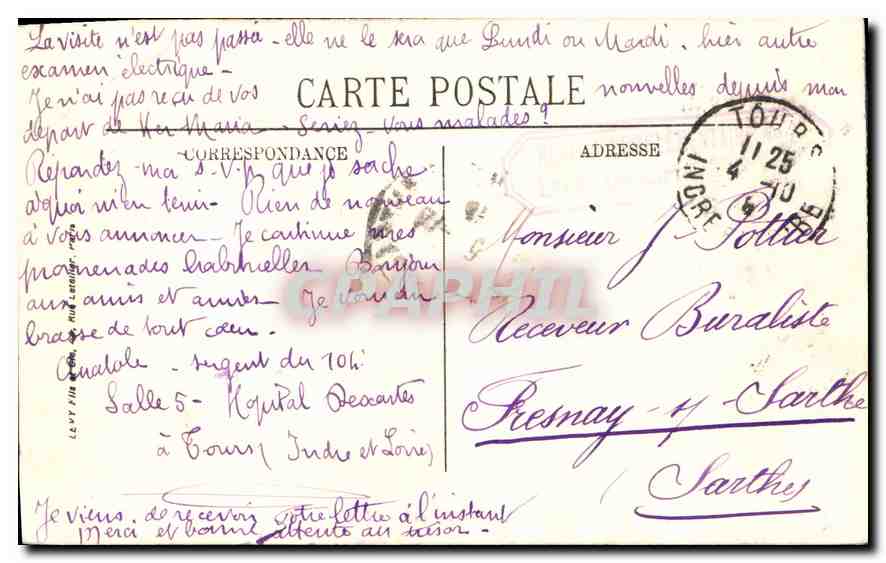 La visite n'est pas passée - elle ne le sera que Lundi ou Mardi. hier autre
examen électrique -
Je n'ai pas reçu de vos
CARTE POSTALE
nouvelles depuis mon
départ de Ker Maria. Seriez-vous malades?
CORRESPONDANCE
Répondez-moi s.v.p. que je sache
à quoi m'en tenir - Rien de nouveau
à vous annoncer - Je continue mes
promenades habituelles Bonjour
aux amis et amies - Je vous
brasse de tout cœur.
Anatole - sergent du 104
Salle 5 - Hopital Descartes
à Tours (Indre et Loire)
Je viens de recevoir votre lettre à l'instant
Merci et bonne attente au trésor -
LEVY Fils et Cie, Rue Letellier, Paris
ADRESSE
TOURS
11 25
4 - 10
INDRE
Monsieur J Pottier
Receveur Buraliste
Fresnay s/ Sarthe
Sarthe
CPAPHIL